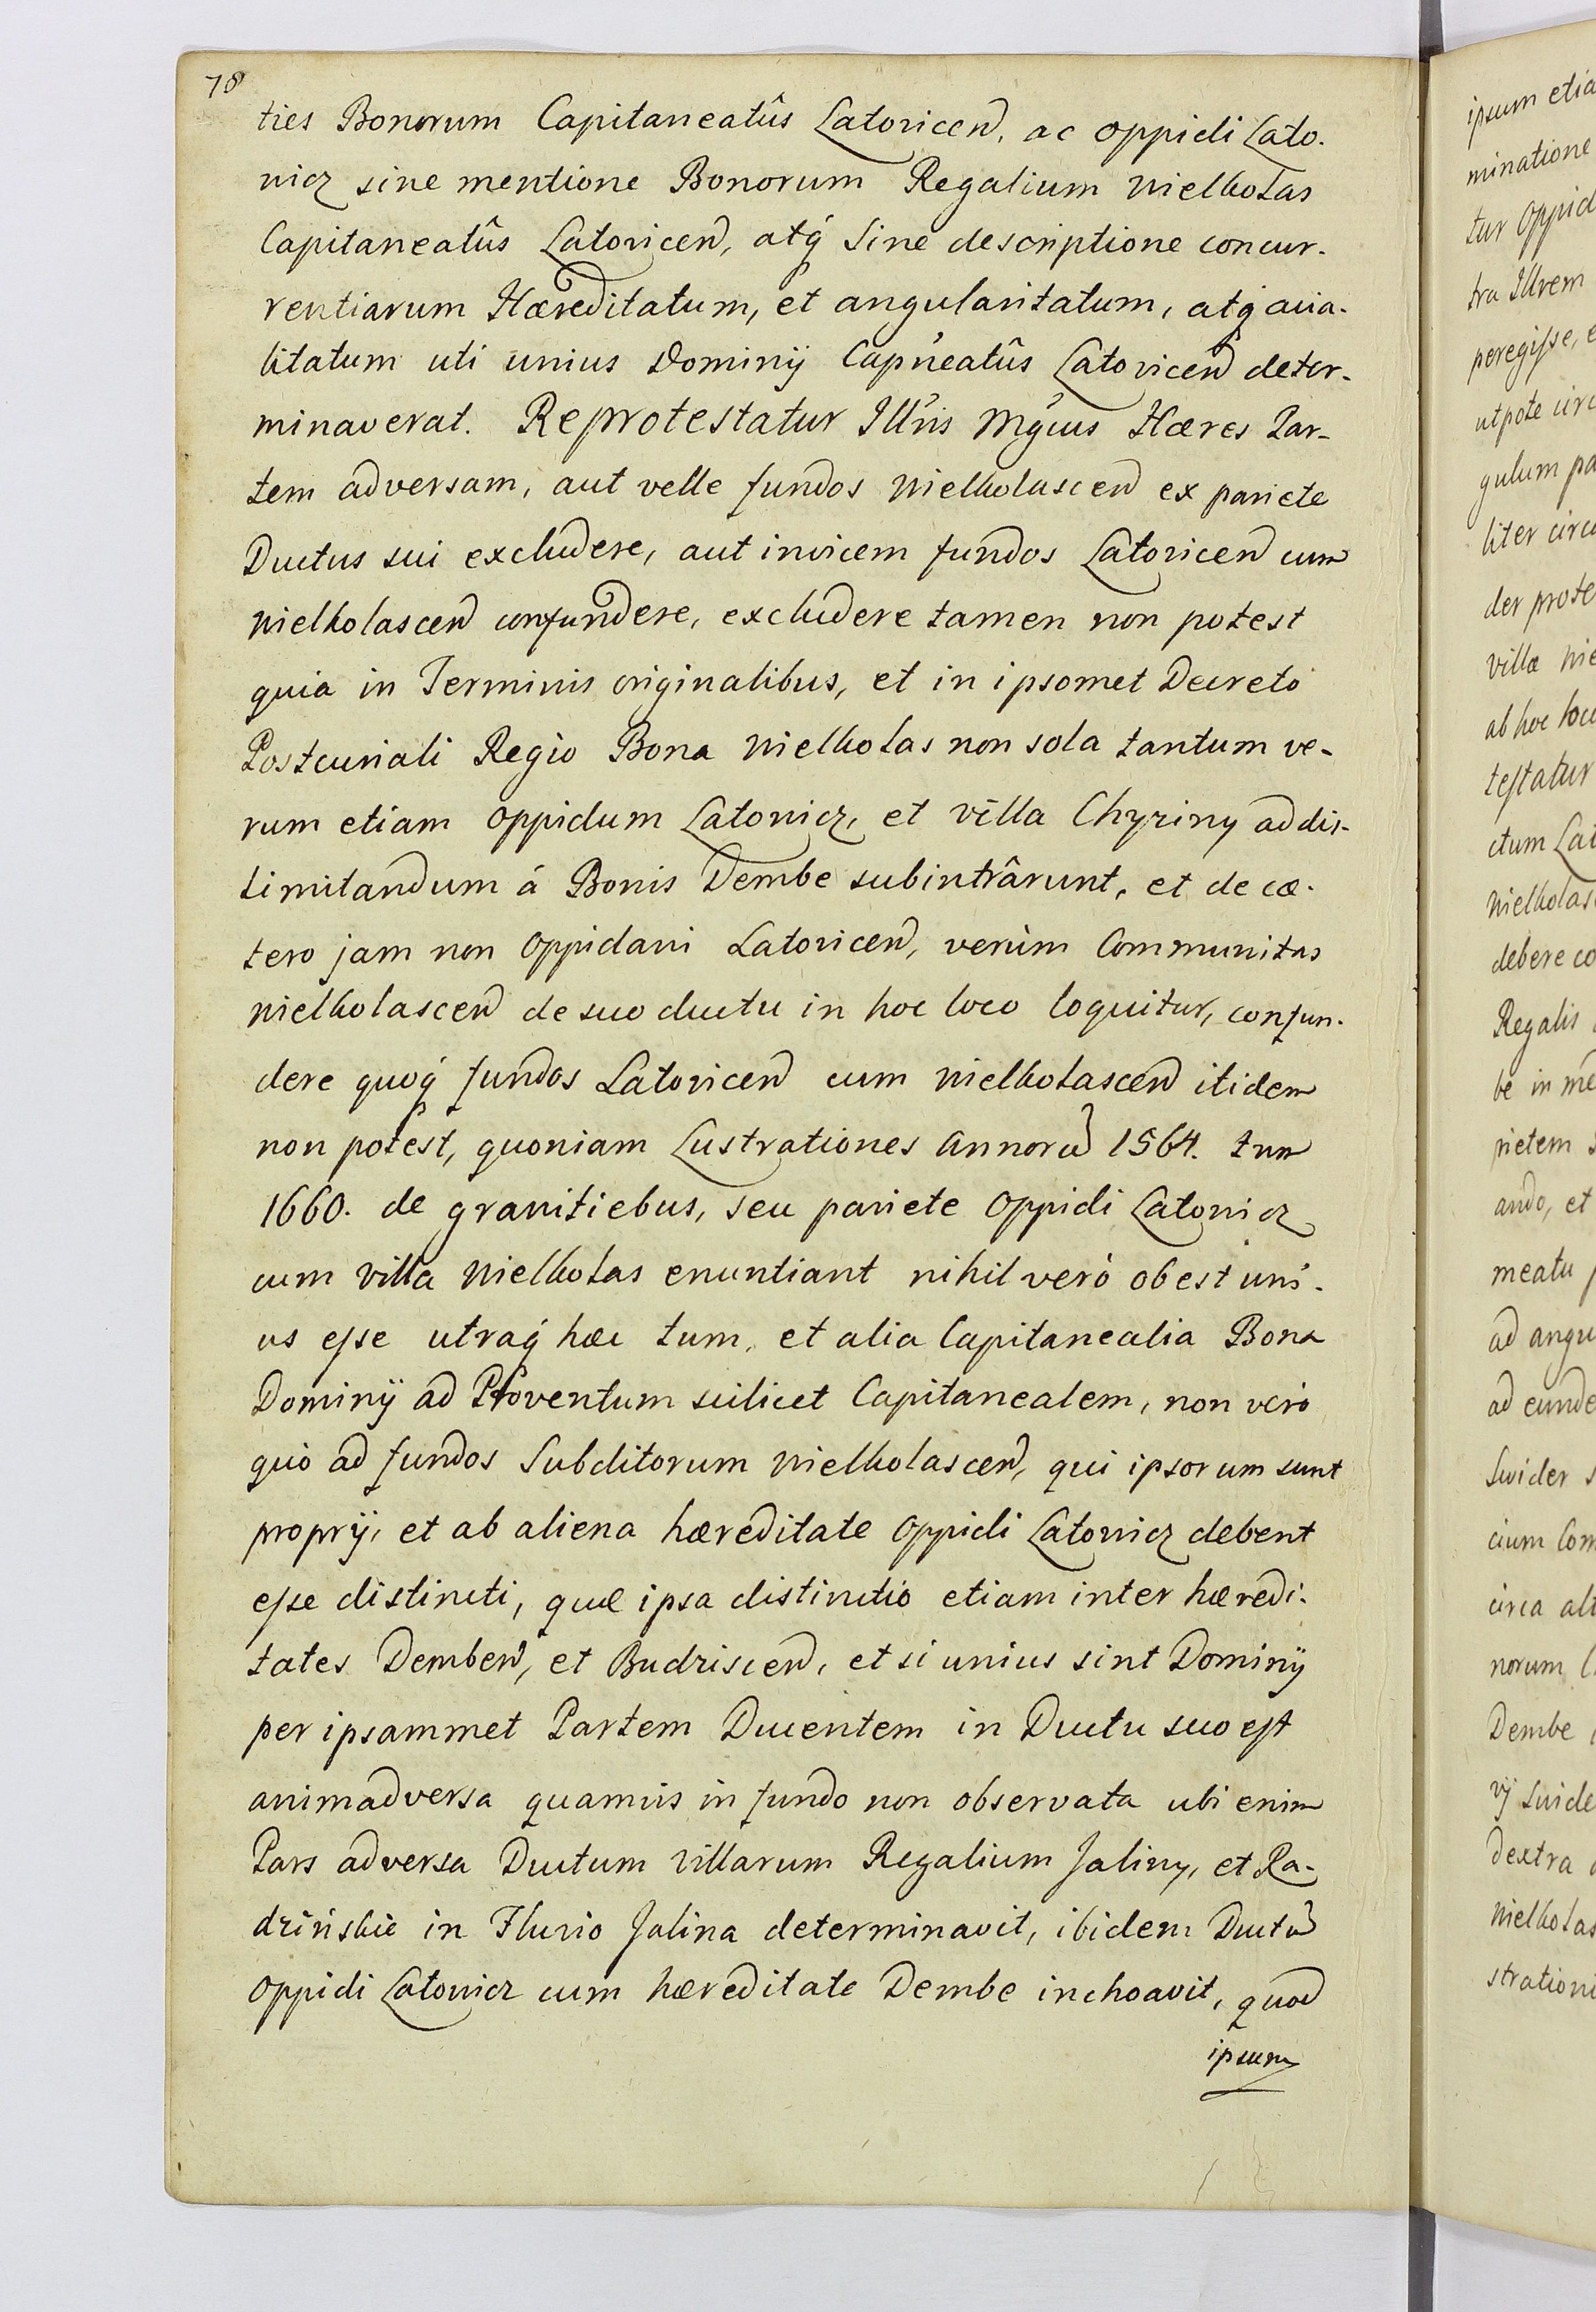 78
ties Bonorum Capitaneatûs Latovicen̄, ac oppidi Lato.
vicz sine mentione Bonorum Regalium Wielkolas
Capitaneatûs Latovicen̄, atq́ Sine descriptione concur.
rentiarum Hæreditatum, et angularitatum, atq́ aua.
litatum uti unius Dominÿ Cap̃neatûs Latovicen̄ deter-
minaverat. Reprotestatur Ill̃ris Mg̃cus Hæres Par-
tem adversam, aut velle fundos Wielkolascen̄ ex pariete
Ductus sui excludere, aut invicem fundos Latovicen̄ cum
Wielkolascen̄ confundere, excludere tamen non potest
quia in Terminis originalibus, et in ipsomet Decreto
Postcuriali Regio Bona Wielkolas non sola tantum ve-
rum etiam oppidum Latovicz, et villa Chyziny ad dis-
limitandum á Bonis Dembe subintrârunt, et de cæ.
tero jam non Oppidani Latovicen̄, verùm Communitas
Wielkolascen̄ de suo ductu in hoc loco loquitur, confun.
dere quoq́ fundos Latovicen̄ cum Wielkolascen̄ itidem
non potest, quoniam Lustrationes Annorū 1564. tum
1660. de granitiebus, seu pariete Oppidi Latovicz
cum villa Wielkolas enuntiant nihil verò obest uni.
us eſse utraq́ hæc tum, et alia Capitanealia Bona
Dominÿ ad Proventum scilicet Capitanealem, non verò
quò ad fundos Subditorum Wielkolascen̄, qui ipsorum sunt
proprÿ, et ab aliena hæreditate Oppidi Latovicz debent
eſse distincti, quæ ipsa distinctio etiam inter hæredi.
tates Demben̄, et Budziscen̄, et si unius sint Dominÿ
per ipsammet Partem Ducentem in Ductu suo eſt
animadversa quamvis in fundo non observata ubi enim
Pars adversa Ductum Villarum Regalium Jaliny, et Ra-
dzińskie in Fluvio Jalina determinavit, ibidem Ductū
Oppidi Latovicz cum hæreditate Dembe inchoavit, quod
ipsum
ipsum etia
minatione
tur Oppid
tra Illrem
peregiſse, e
utpote circ
gulum pa
liter circa
der prote
villæ Wie
ab hoc loco
teſtatur
ctum Lat
Wielkolas
debere co
Regalis
be in me
rietem s
ando, et
meatu p
ad angu
ad eunde
Swider s
cium Com
circa alt
norum C
Dembe
vÿ Swide
dextra
Wielkolas
strationi